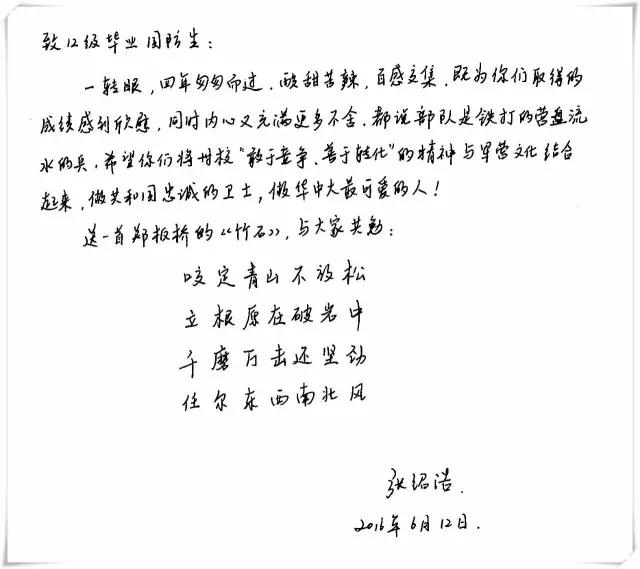 致12级毕业国防生：
一转眼，四年匆匆而过，酸甜苦辣，百感交集，既为你们取得的
成绩感到欣慰，同时内心又充满更多不舍．都说部队是铁打的营盘流
水的兵，希望你们将母校“敢于竞争、善于转化”的精神与军营文化结合
起来，做共和国忠诚的卫士，做华中大最可爱的人！
送一首郑板桥的《竹石》，与大家共勉：
咬定青山不放松
立根原在破岩中
千磨万击还坚劲
任尔东西南北风
张绍浩．
2016年6月12日．